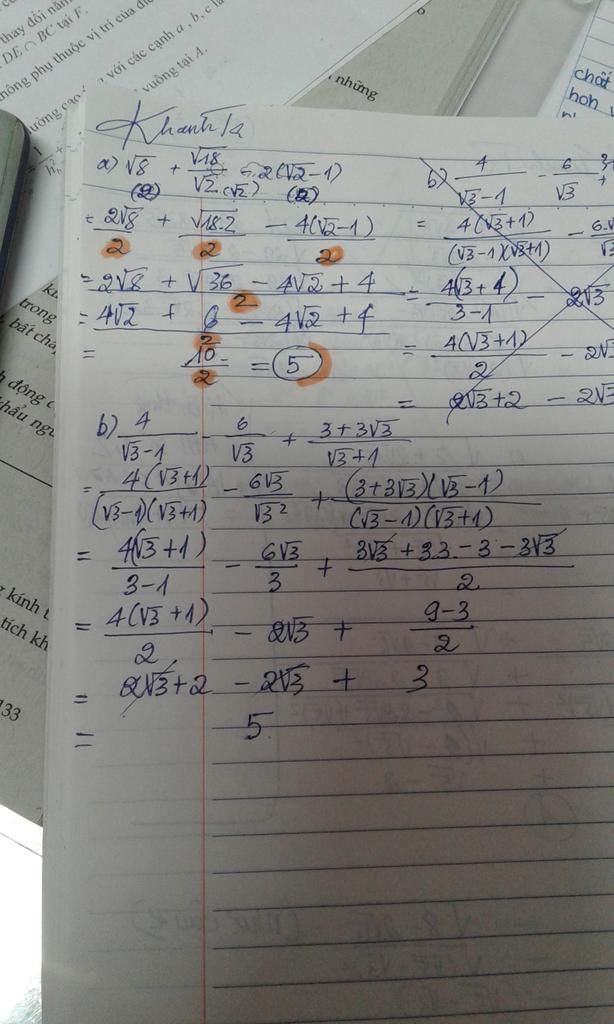 thay đổi
DE ∩ BC tại F.
không phụ thuộc vị trí của
với các cạnh a, b, c
vuông tại A.
những
chất
Khanhla
a) √8 + √18/√2 - 2(√2-1)
(2) (√2) (2)
= 2√8/2 + √18.2/2 - 4(√2-1)/2
= 2√8 + √36 - 4√2 + 4 / 2
= 4√2 + 6 - 4√2 + 4 / 2
= 10/2 = 5
b) 4/√3-1 - 6/√3 +
= 4(√3+1)/(√3-1)(√3+1) - 6√3
= 4(√3+1)/3-1 - 2√3
= 4(√3+1)/2 - 2√3
= 2√3+2 - 2√3
b) 4/√3-1 - 6/√3 + 3+3√3/√3+1
= 4(√3+1)/(√3-1)(√3+1) - 6√3/√3² + (3+3√3)(√3-1)/(√3-1)(√3+1)
= 4(√3+1)/3-1 - 6√3/3 + 3√3+3.3-3-3√3/2
= 4(√3+1)/2 - 2√3 + 9-3/2
= 2√3+2 - 2√3 + 3
= 5
trong
động
kính
tích
133